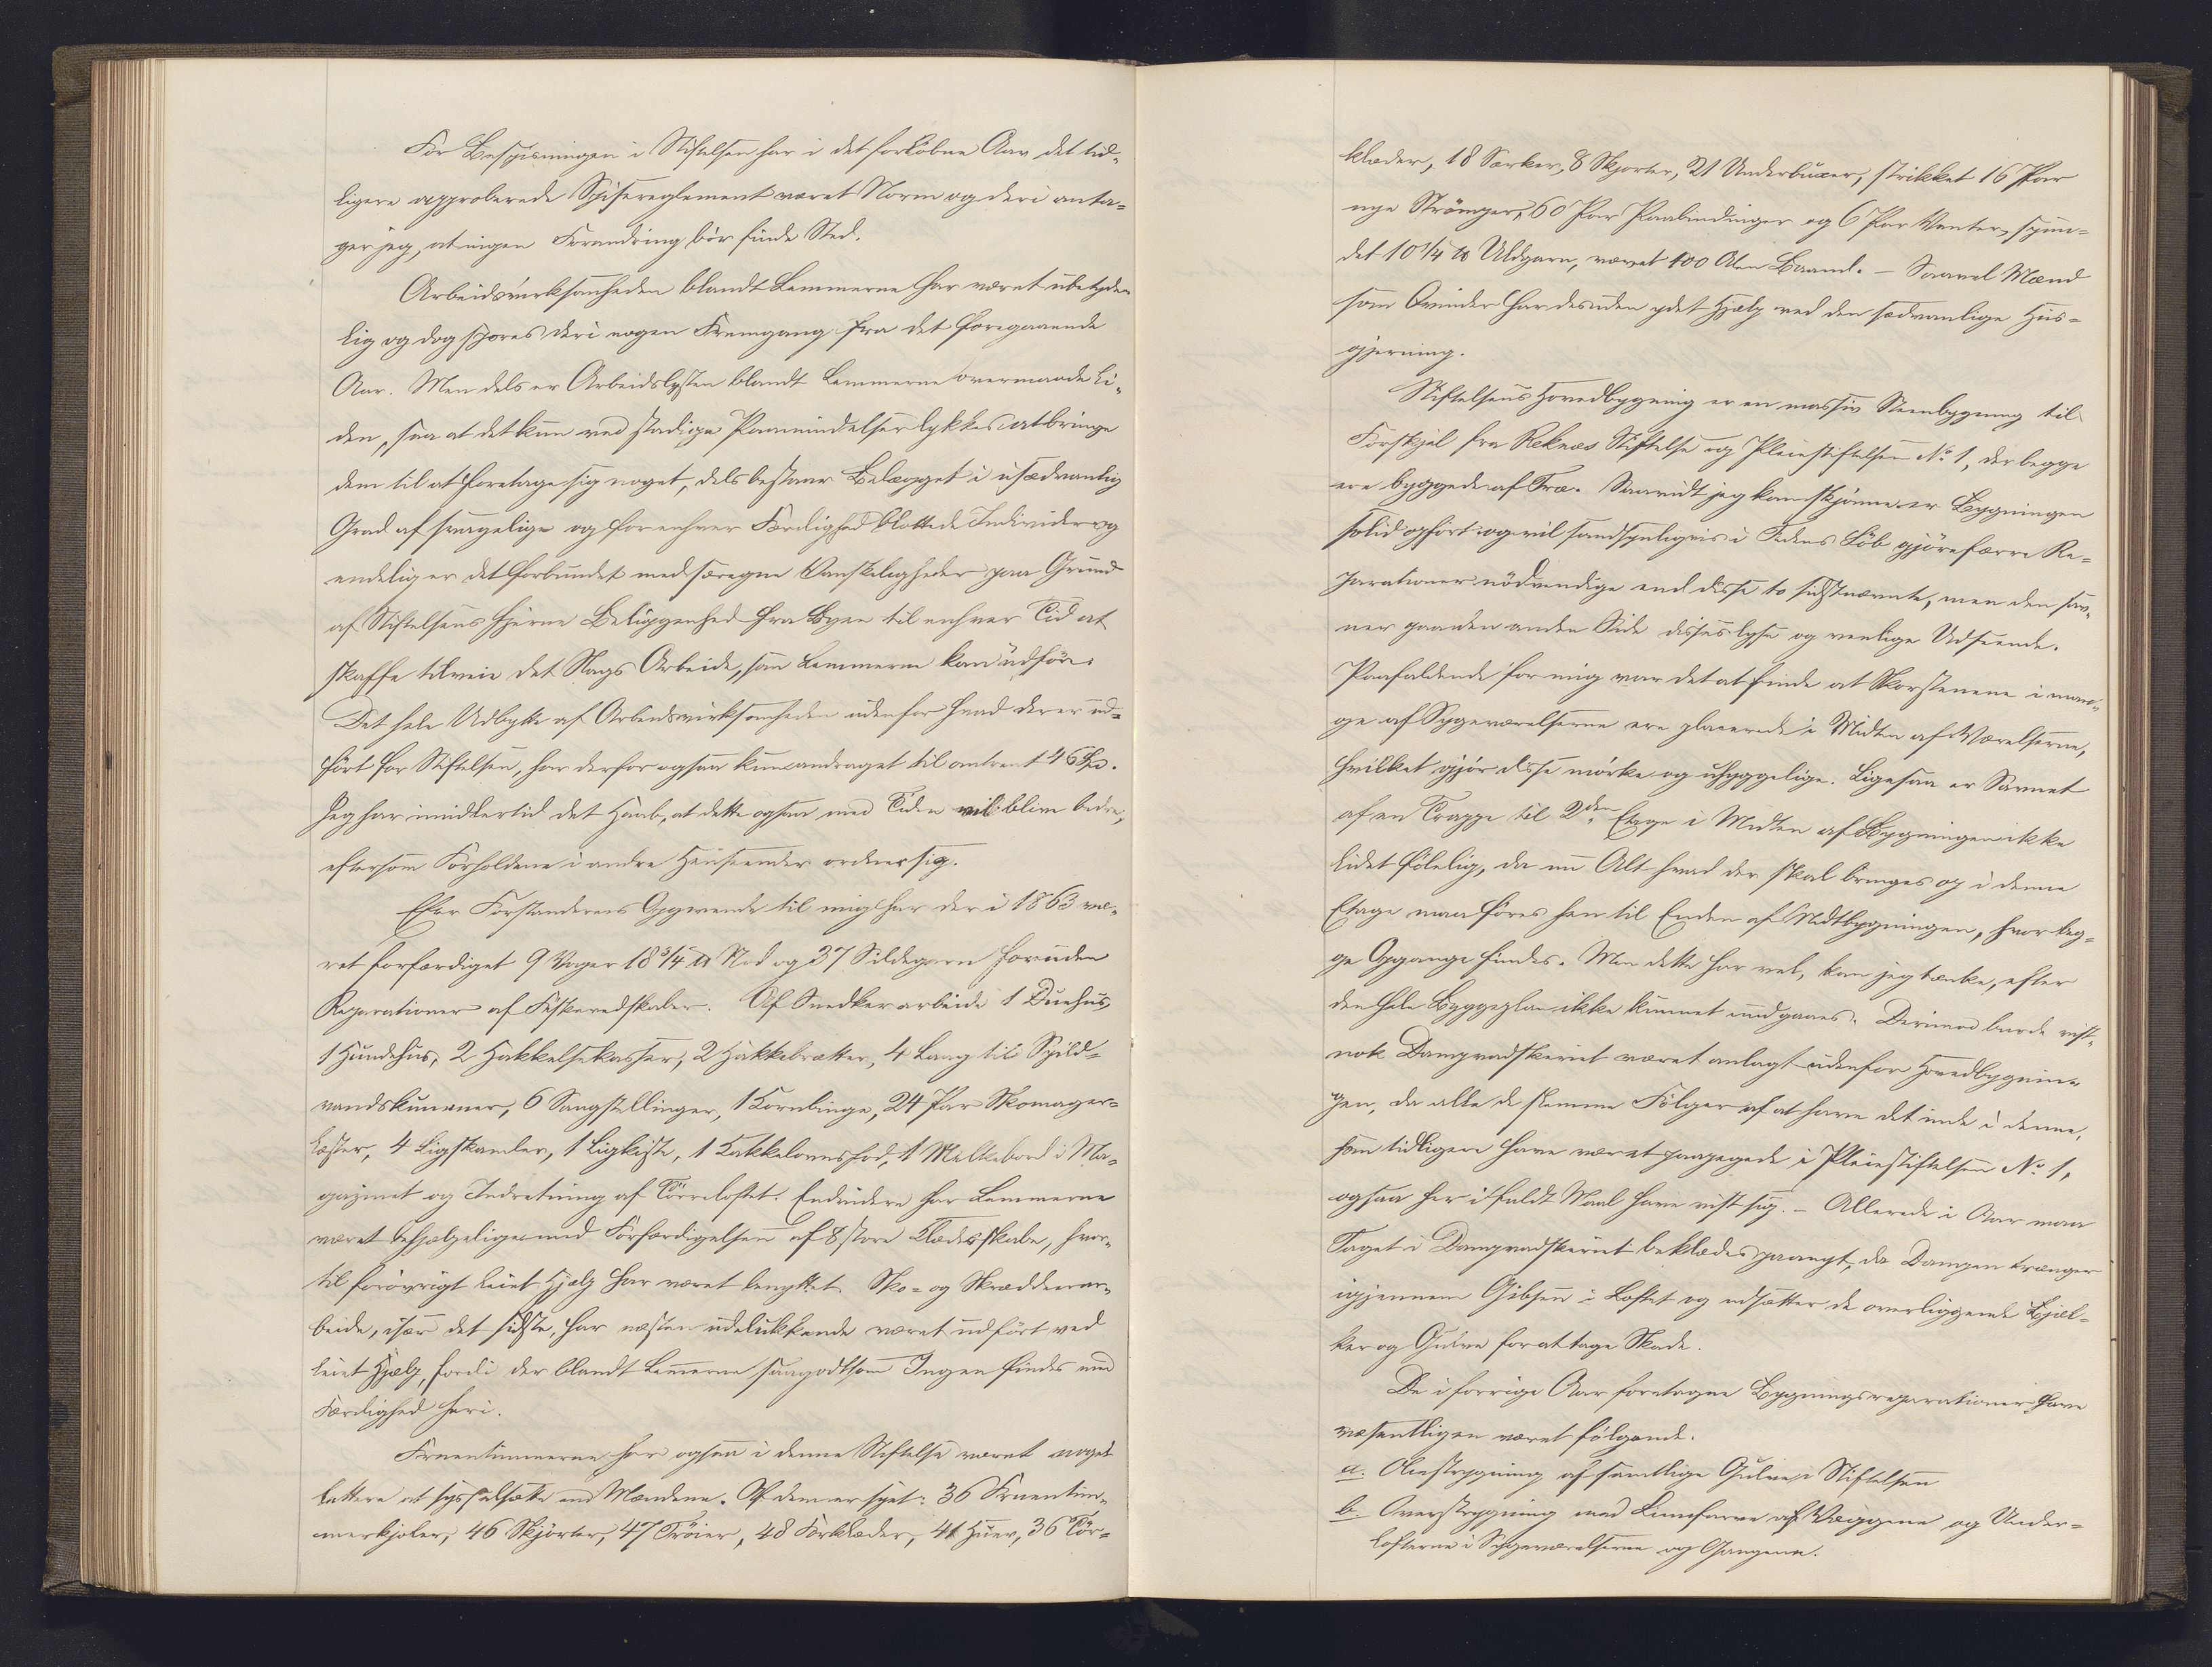 For Bespisningen i Stiftelsen har i det forløbne Aar det tid-
ligere approberede Spisereglement været Norm og deri anta-
ger jeg, at ingen Forandring bör finde Sted.
Arbeidsvirksomheden blandt Lemmerne har været ubetyde-
lig og dog spores deri nogen Fremgang fra det foregaaende
Aar. Men dels er Arbeidslysten blandt Lemmerne overmaade li-
den, saa at det kun ved stadige Paamindelser lykkes at bringe
dem til at foretage sig noget, dels bestaar Belægget i usædvanlig
Grad af svagelige og for enhver Færdighed blottede Individer og
endelig er det forbundet med særegne Vanskeligheder paa Grund
af Stiftelsens fjerne Beliggenhed fra Byen til enhver Tid at
skaffe tilveie det Slags Arbeide, som Lemmerne kan udföre.
Det hele Udbytte af Arbeidsvirksomheden udenfor hvad der er ud-
fört for Stiftelsen, har derfor ogsaa kun andraget til omtrent 46 Spd.
Jeg har imidlertid det Haab, at dette ogsaa med Tiden vil blive bedre,
eftersom Forholdene i andre Henseender ordner sig.
Efter Forstanderens Opgivende til mig har der i 1863 væ-
ret forfærdiget 9 Voger 18 3/4 ℔ Nod og 37 Sildegarn foruden
Reparationer af Fiskeredskaber. Af Snedkerarbeide 1 Duehus,
1 Hundehus, 2 Hakkelsekasser, 2 Hakkebrætter, 4 Laag til Spild-
vandskummer, 6 Sengstellinger, 1 Kornbinge, 24 Par Skomager-
læster, 4 Ligskamler, 1 Ligkiste, 1 Kakkelovnsfod, 1 Melkebord i Ma-
gazinet og Indretning af Törreloftet. Endvidere har Lemmerne
været behjælpelige med Forfærdigelsen af 8 store Klædesskabe, hvor-
til forövrigt leiet Hjælp har været benyttet. Sko- og Skrædderar-
beide, især det sidste, har næsten udelukkende været udfört ved
leiet Hjælp, fordi der blandt Lemmerne saagodtsom Ingen findes med
Færdighed heri.
Fruentimmerne har ogsaa i denne Stiftelse været noget
lettere at sysselsætte end Mændene. Af dem er syet: 36 Fruentim-
merkjoler, 46 Skjörter, 47 Tröier, 48 Forklæder, 41 Huer, 36 Tör-
klæder, 18 Særker, 8 Skjorter, 21 Underbuxer, strikket 16 Par
nye Strömper, 60 Par Paabindinger og 6 Par Vanter, spun-
det 10 1/4 ℔ Uldgarn, vævet 100 Alen Baand. – Saavel Mænd
som Qvinder har desuden ydet Hjælp ved den sædvanlige Hus-
gjerning.
Stiftelsens Hovedbygning er en massiv Steenbygning til
Forskjel fra Reknæs Stiftelse og Pleiestiftelsen No 1, der begge
ere byggede af Træ. Saavidt jeg kan skjönne er Bygningen
solid opfört og vil sandsynligvis i Tidens Löb gjöre færre Re-
parationer nödvendige end disse to sidstnævnte, men den sav-
ner paa den anden Side disses lyse og venlige Udseende.
Paafaldende for mig var det at finde at Skorstenene i man-
ge af Sygeværelserne ere placerede i Midten af Værelserne,
hvilket gjör disse mörke og uhyggelige. Ligesaa er Savnet
af en Trappe til 2den Etage i Midten af Bygningen ikke
lidet fölelig, da nu Alt hvad der skal bringes op i denne
Etage maa föres hen til Enden af Midtbygningen, hvor beg-
ge Opgange findes. Men dette har vel, kan jeg tænke, efter
den hele Byggeplan ikke kunnet undgaaes. Derimod burde vist-
nok Dampvadskeriet været anlagt udenfor Hovedbygnin-
gen, da alle de slemme Fölger af at have det inde i denne,
som tidligere have været paapegede i Pleiestiftelsen No 1,
ogsaa her i fuldt Maal have vist sig. – Allerede i Aar maa
Taget i Dampvadskeriet beklædes paanyt, da Dampen trænger
igjennem Gibsen i Loftet og udsætter de overliggende Bjel-
ker og Gulve for at tage Skade.
De i forrige Aar foretagne Bygningsreparationer have
væsentligen været fölgende.
a. Oliestrygning af samtlige Gulve i Stiftelsen
b. Overstrygning med Limfarve af Væggene og Under-
lofterne i Sygeværelserne og Gangene.